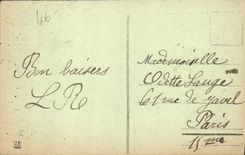 46
Bon baisers
L R
Mademoiselle
Odette Lauge
61 rue de Javel
Paris
15me